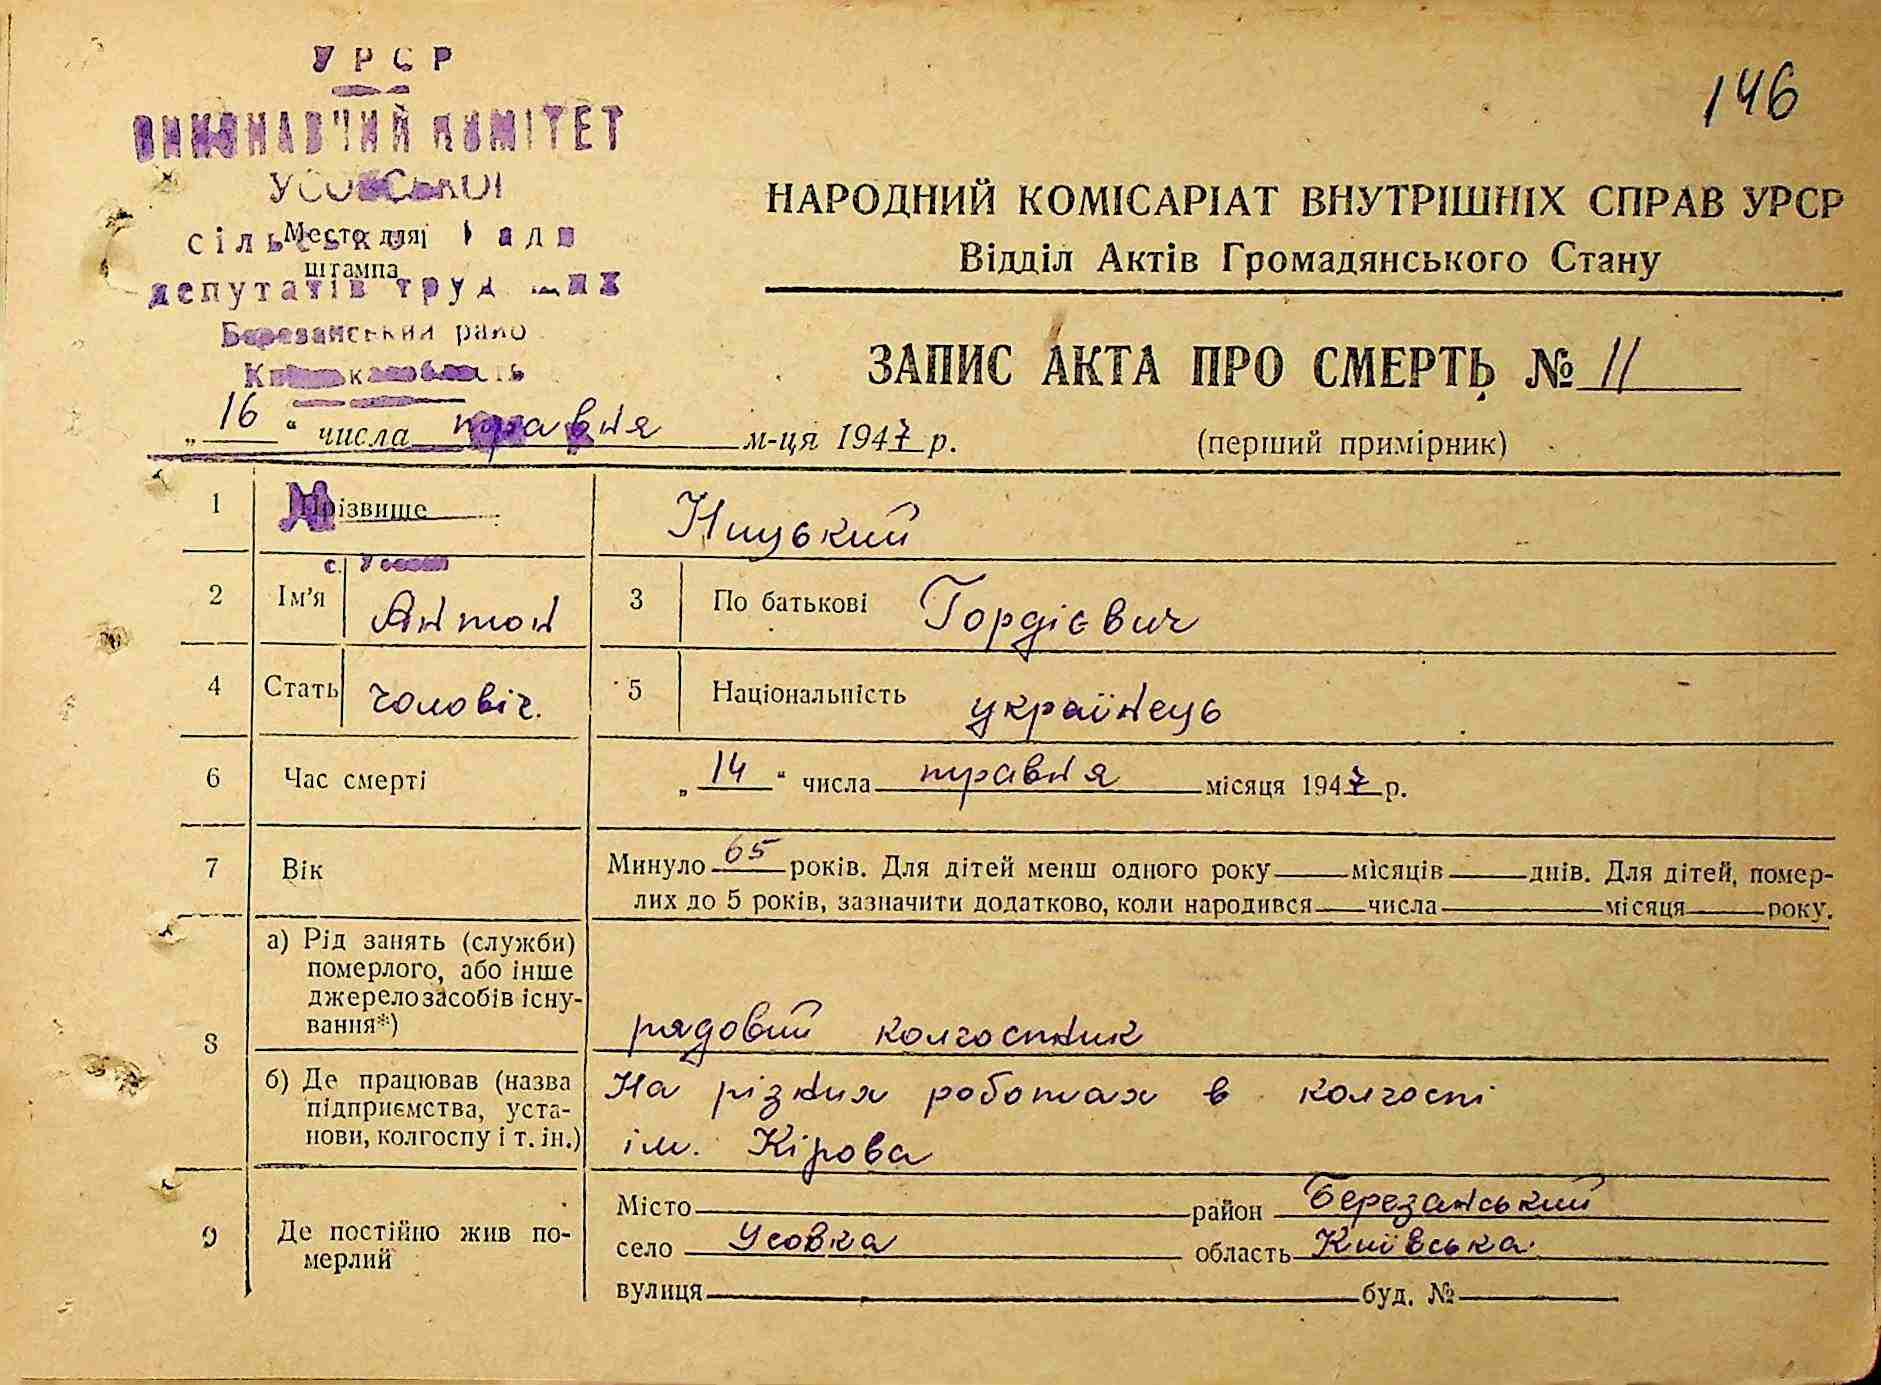 146
УРСР
ВИКОНАВЧИЙ КОМІТЕТ
УСОВСЬКОЇ
сільської Ради
депутатів трудящих
Березанський район
Київська область
Место для
штампа
НАРОДНИЙ КОМІСАРІАТ ВНУТРІШНІХ СПРАВ УРСР
Відділ Актів Громадянського Стану
ЗАПИС АКТА ПРО СМЕРТЬ № 11
„16“ числа травня м-ця 1947 р. (перший примірник)
1 Прізвище Ницький
с. Усовка
2 Ім'я Антон 3 По батькові Гордієвич
4 Стать чоловіч. 5 Національність українець
6 Час смерті „14“ числа травня місяця 1947 р.
7 Вік Минуло 65 років. Для дітей менш одного року місяців днів. Для дітей, помер-
лих до 5 років, зазначити додатково, коли народився числа місяця року.
8 а) Рід занять (служби)
померлого, або інше
джерело засобів існу-
вання*) рядовий колгоспник
б) Де працював (назва
підприємства, уста-
нови, колгоспу і т. ін.)
На різних роботах в колгоспі
ім. Кірова
9 Де постійно жив по-
мерлий
Місто район Березанський
село Усовка область Київська
вулиця буд. №